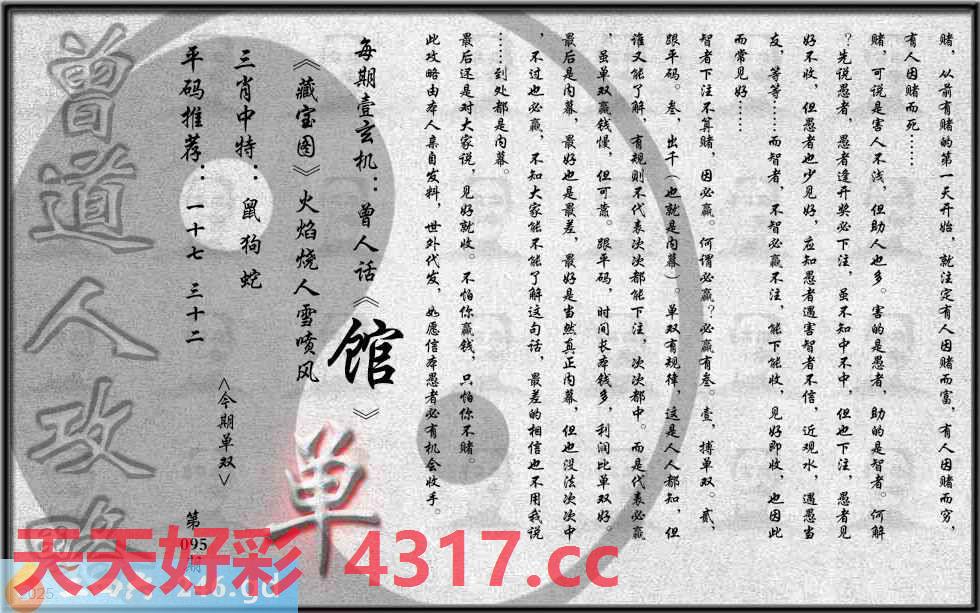 赌，从前有赌的第一天开始，就注定有人因赌而富，有人因赌而穷，
有人因赌而死……
赌，可说是害人不浅，但助人也多。害的是愚者，助的是智者。何解
？先说愚者，愚者逢开奖必下注，虽不知中不中，但也下注，愚者见
好不收，但愚者也少见好，应知愚者遇害智者不信，近观水，遇愚当
友，等等……而智者，不智必赢不注，能下能收，见好即收，也因此
而常见好……
智者下注不算赌，因必赢。何谓必赢？必赢有叁。壹，搏单双。贰，
跟平码。叁，出千（也就是内幕）。单双有规律，这是人人都知，但
谁又能了解，有规则不代表次次都能下注，次次都中。而是代表必赢
，虽单双赢钱慢，但可靠。跟平码，时间长本钱多，利润比单双好。
最后是内幕，最好也是最差，最好是当然真正内幕，但也没法次次中
，不过也必赢，不知大家能不能了解这句话，最差的相信也不用我说
……到处都是内幕。
最后还是对大家说，见好就收。不怕你赢钱，只怕你不赌。
此攻略由本人亲自发料，世外代发，如愿信本愚者必有机会收手。
每期壹玄机：曾人话《馆》
《藏宝图》火焰烧人雪喷风
三肖中特：鼠狗蛇
平码推荐：一十七 三十二
<今期单双>
单
第095期
曾道人攻略
天天好彩 4317.cc
2025
246.gd